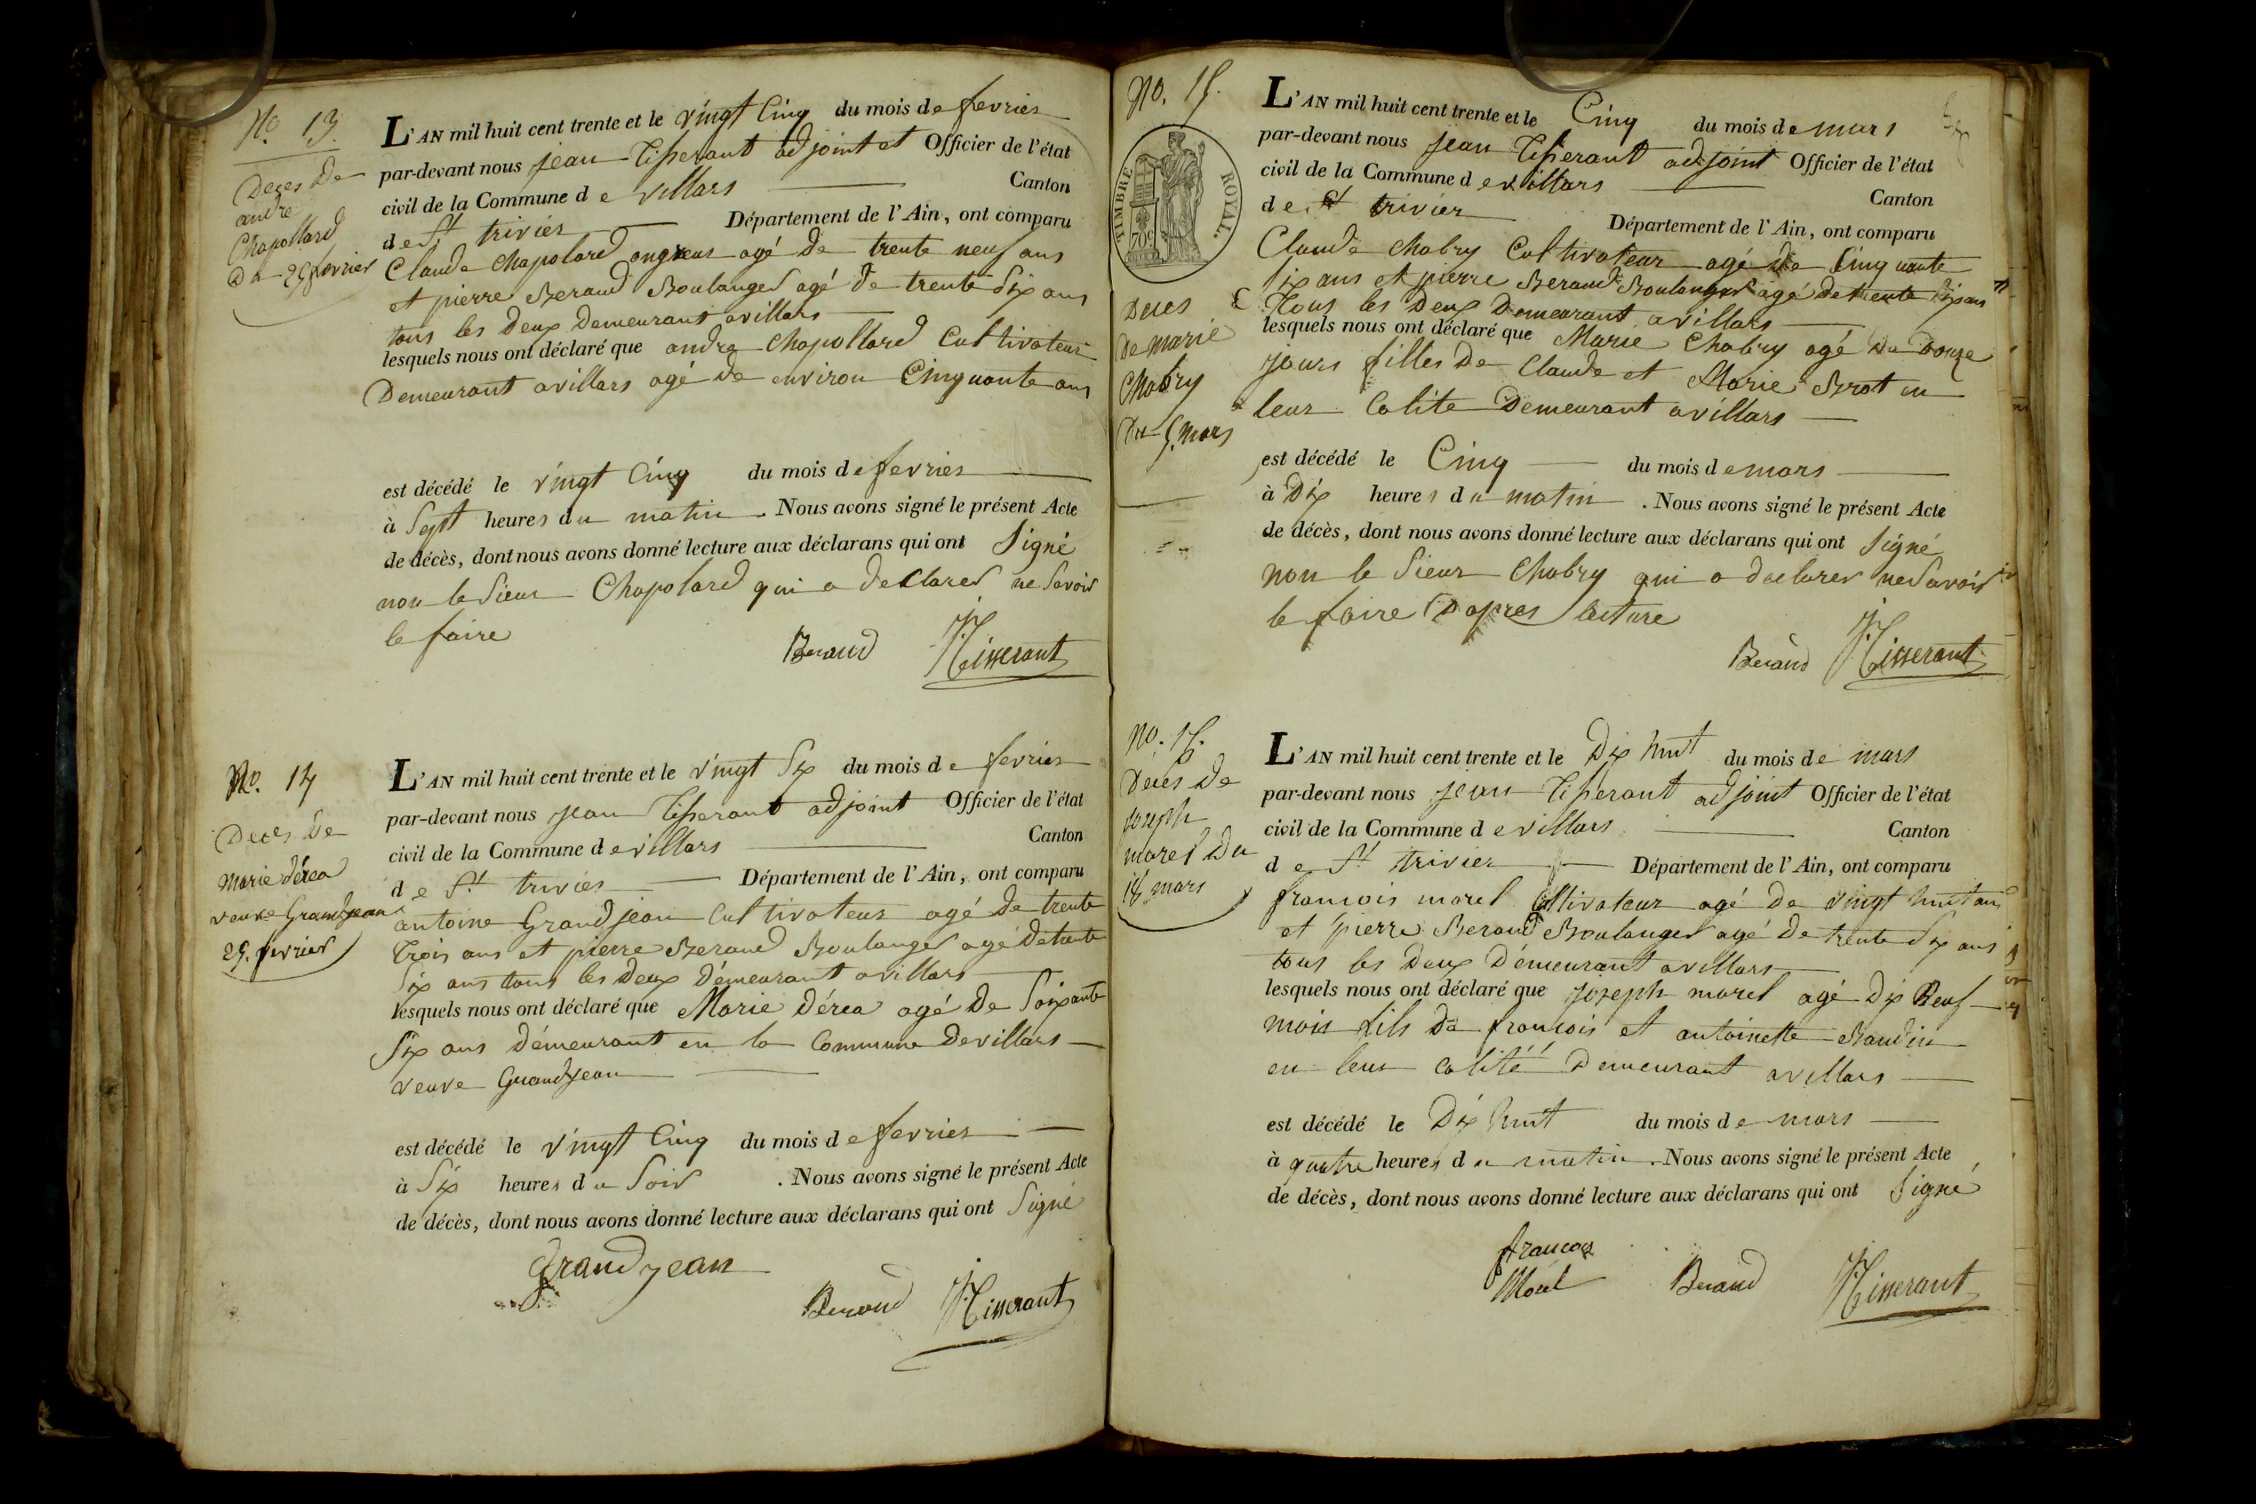 No. 13.
Deces De
andre
Chapollard
Du 25 fevrier
L'AN mil huit cent trente et le vingt Cinq du mois de fevrier
par-devant nous jean Tisserant adjoint et Officier de l'état
civil de la Commune de villars Canton
de St trivier Département de l'Ain, ont comparu
Claude Chapolard agé de trente neuf ans
et pierre Beraud Boulanger agé de trente Six ans
tous les Deux Demeurant avillars
lesquels nous ont déclaré que andre Chapollard Cultivateur
Demeurant avillars agé de environ Cinquante ans
est décédé le vingt Cinq du mois de fevrier
à Sept heures du matin. Nous avons signé le présent Acte
de décès, dont nous avons donné lecture aux déclarans qui ont Signé
non le Sieur Chapolard qui a declarer ne Savoir
le faire
Beraud JTisserant
No. 14
Deces De
Marie Dérea
veuve Grandjean
25. fevrier
L'AN mil huit cent trente et le vingt Six du mois de fevrier
par-devant nous jean Tisserant adjoint Officier de l'état
civil de la Commune de villars Canton
de St trivier Département de l'Ain, ont comparu
antoine Grandjean Cultivateur agé de trente
trois ans et pierre Beraud Boulanger agé detrente
Six ans tous les Deux Démeurant avillars
lesquels nous ont déclaré que Marie Dérea agé de Soixante
Six ans démeurant en la Commune Devillars
veuve Grandjean
est décédé le vingt Cinq du mois de fevrier
à Six heures du Soir. Nous avons signé le présent Acte
de décès, dont nous avons donné lecture aux déclarans qui ont Signé
grandjean
Beraud JTisserant
No. 15.
TIMBRE ROYAL.
70c
Deces
De marie
Chabry
Du 5. mars
L'AN mil huit cent trente et le Cinq du mois de mars
par-devant nous jean Tisserant adjoint Officier de l'état
civil de la Commune de villars Canton
de St trivier Département de l'Ain, ont comparu
Claude Chabry Cultivateur agé de Cinquante
Six ans et pierre Beraud Boulanger agé detrente Six ans
Tous les Deux Demeurant avillars
lesquels nous ont déclaré que Marie Chabry agé De Douze
jours filles De Claude et Marie Brot en
leur Calite Demeurant avillars
est décédé le Cinq du mois de mars
à Dix heures du matin. Nous avons signé le présent Acte
de décès, dont nous avons donné lecture aux déclarans qui ont Signé
non le Sieur Chabry qui a declarer neSavoir
le faire D'apres lecture
Beraud JTisserant
Deces De
joseph
morel Du
18 mars
L'AN mil huit cent trente et le Dix huit du mois de mars
par-devant nous jean Tisserant adjoint Officier de l'état
civil de la Commune de villars Canton
de St trivier Département de l'Ain, ont comparu
francois morel Cultivateur agé de vingt huit ans
et pierre Beraud Boulanger agé de trente Six ans
tous les Deux Démeurant avillars
lesquels nous ont déclaré que joseph morel agé Dix Neuf
mois fils De francois et antoinette Baudin
en leur Calité Demeurant avillars
est décédé le Dix huit du mois de mars
à quatre heures du matin. Nous avons signé le présent Acte
de décès, dont nous avons donné lecture aux déclarans qui ont Signé
francois
Morel Beraud JTisserant